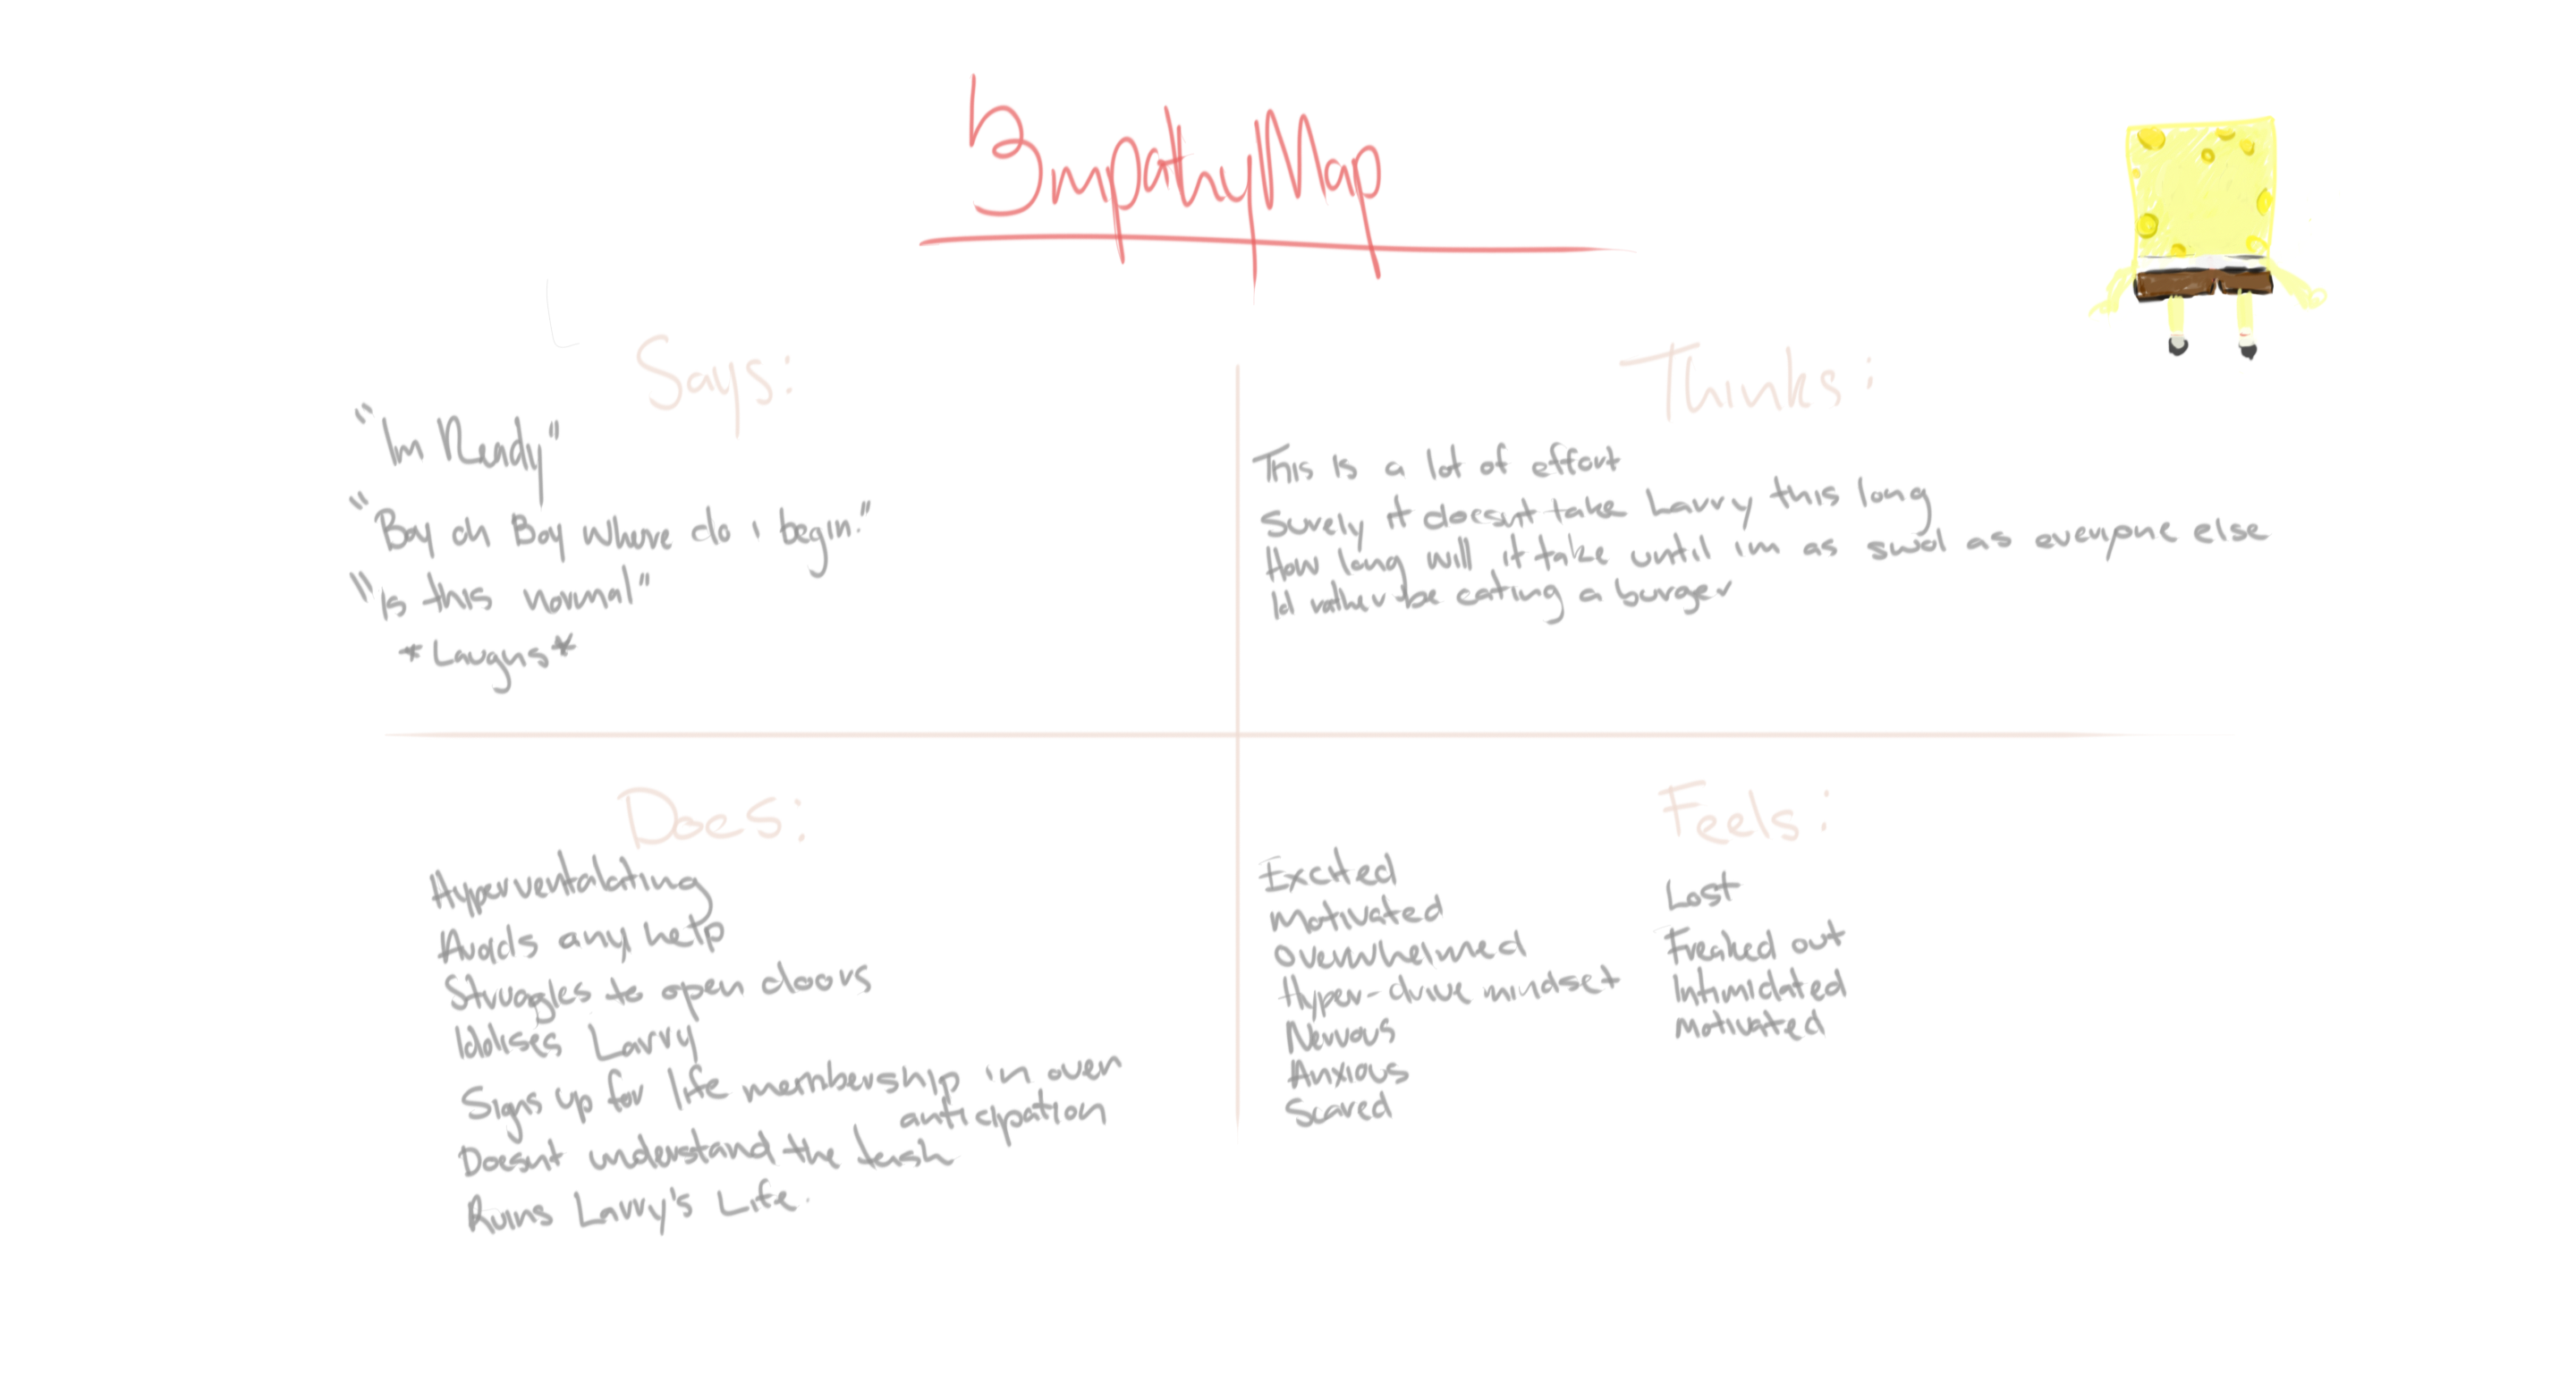 Empathy Map
Says:
"Im Ready"
"Boy oh Boy where do i begin."
"Is this normal"
*Laughs*
Thinks:
This is a lot of effort
Surely it doesnt take Larry this long
How long will it take until im as swol as everyone else
Id rather be eating a burger
Does:
Hyperventalating
Avoids any help
Struggles to open doors
Idolises Larry
Signs up for life membership in over
anticipation
Doesnt understand the
Ruins Larry's Life.
Feels:
Excited
Motivated
Overwhelmed
Hyper-drive mindset
Nervous
Anxious
Scared
Lost
Freaked out
Intimidated
Motivated